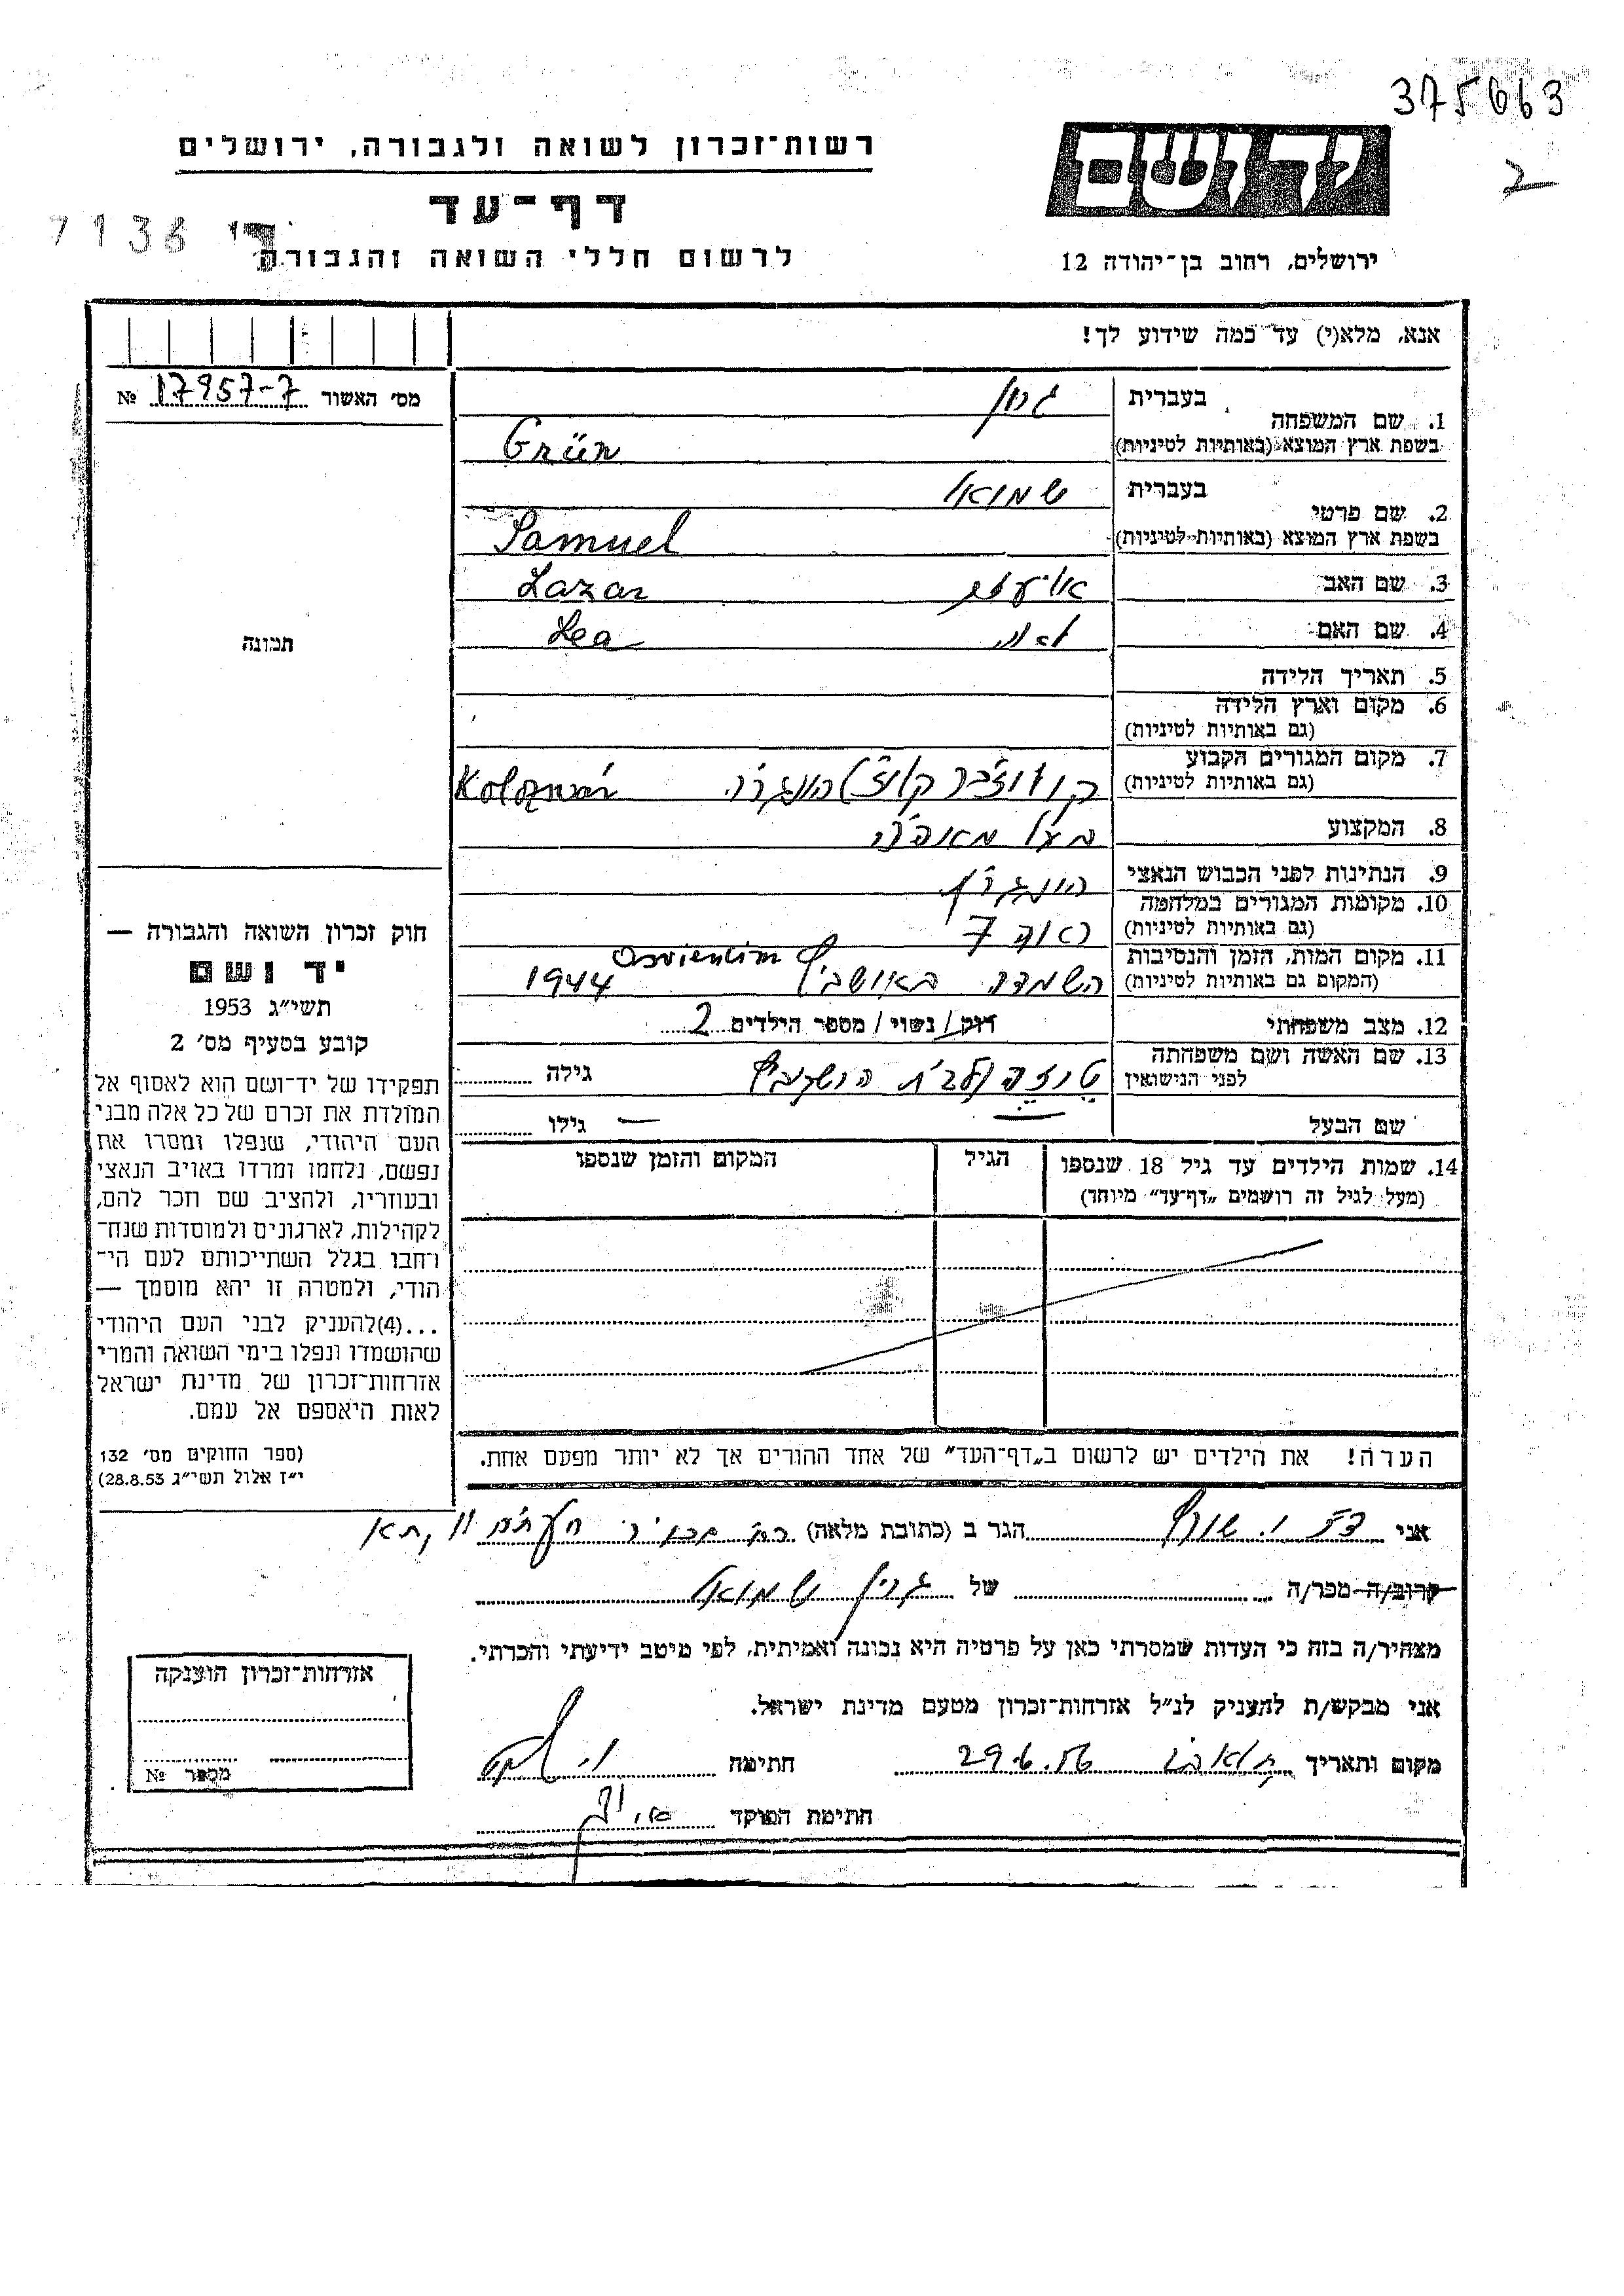 375663
2
רשות־זכרון לשואה ולגבורה, ירושלים
יד ושם
דף־עד
7136
לרשום חללי השואה והגבורה
ירושלים, רחוב בן־יהודה 12
אנא, מלא(י) עד כמה שידוע לך!
מס׳ האשור 17957-7 №
1. שם המשפחה
בעברית גרין
בשפת ארץ המוצא (באותיות לטיניות) Grün
2. שם פרטי
בעברית שמואל
בשפת ארץ המוצא (באותיות לטיניות) Samuel
3. שם האב אליעזר Lazar
4. שם האם לאה Lea
5. תאריך הלידה
6. מקום וארץ הלידה
(גם באותיות לטיניות)
7. מקום המגורים הקבוע
(גם באותיות לטיניות) הונגריה Kolozsvár
8. המקצוע בעל מאפיה
9. הנתינות לפני הכבוש הנאצי הונגרית
10. מקומות המגורים במלחמה
(גם באותיות לטיניות)
11. מקום המות, הזמן והנסיבות
(המקום גם באותיות לטיניות) השמדה באושביץ Osvientim 1944
12. מצב משפחתי רווק/ נשוי/ מספר הילדים 2
13. שם האשה ושם משפחתה
לפני הנישואין גילה
שם הבעל — גילו —
14. שמות הילדים עד גיל 18 שנספו
(מעל לגיל זה רושמים „דף־עד״ מיוחד)
הגיל
המקום והזמן שנספו
הערה! את הילדים יש לרשום ב„דף־העד״ של אחד ההורים אך לא יותר מפעם אחת.
תמונה
חוק זכרון השואה והגבורה —
יד ושם
תשי״ג 1953
קובע בסעיף מס׳ 2
תפקידו של יד־ושם הוא לאסוף אל
המולדת את זכרם של כל אלה מבני
העם היהודי, שנפלו ומסרו את
נפשם, נלחמו ומרדו באויב הנאצי
ובעוזריו, ולהציב שם וזכר להם,
לקהילות, לארגונים ולמוסדות שנח־
רחבו בגלל השתייכותם לעם הי־
הודי, ולמטרה זו יהא מוסמך —
...(4)להעניק לבני העם היהודי
שהושמדו ונפלו בימי השואה והמרי
אזרחות־זכרון של מדינת ישראל
לאות היאספם אל עמם.
(ספר החוקים מס׳ 132
י״ז אלול תשי״ג 28.8.53)
אני הגר ב (כתובת מלאה)
קרוב/ה מכר/ה של גרין שמואל
מצהיר/ה בזה כי העדות שמסרתי כאן על פרטיה היא נכונה ואמיתית, לפי מיטב ידיעתי והכרתי.
אני מבקש/ת להעניק לנ״ל אזרחות־זכרון מטעם מדינת ישראל.
מקום ותאריך 29.6.56 חתימה
חתימת הפוקד
אזרחות־זכרון הוענקה
מספר №